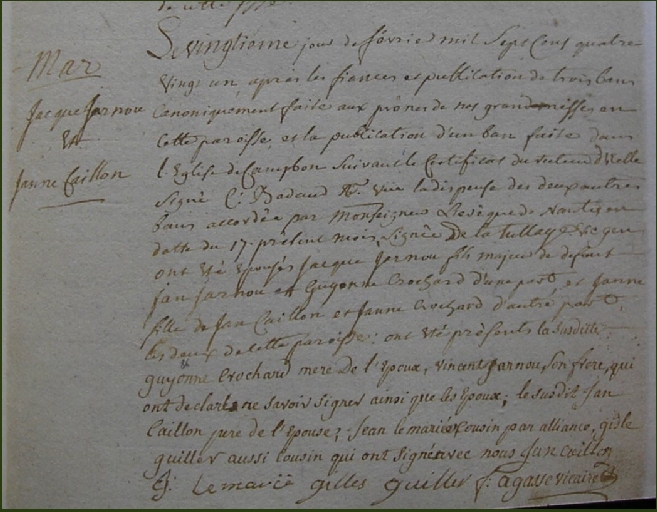 Mar
Jacque Jarnou
et
Janne Caillon
Le vingtieme jour de février mil Sept Cens quatre
vingt un, aprés les fiances et publication de trois bans
Canoniquement faite aux prônes de nos grandmesses en
cette paroisse, et la publication d'un ban faite dans
l'Eglise de Campbon Suivant le Certificat du
Signé C: Badaud vue la dispense des deux autres
bans accordée par Monseigneur L'evêque de Nantes en
datte du 17 présent mois, Signée De la Tullaye
ont été épousés Jacque Jarnou fils majeur de defunt
Jan Jarnou et Guyonne Crochard d'une part, et Janne
fille de Jan Caillon et Janne Crochard d'autre part,
les deux de cette paroisse: ont été présents la susditte
guyonne Crochard mere de l'Epoux, vincent Jarnou, son frere, qui
ont declaré ne savoir signer ainsi que les Epoux; le susdit Jan
Caillon pere de l'Epouse; Jean le marié Cousin par alliance, gisle
guiller aussi Cousin qui ont signé avec nous Jan Caillon
J: Lemarié gilles guiller F: agasse vicaire